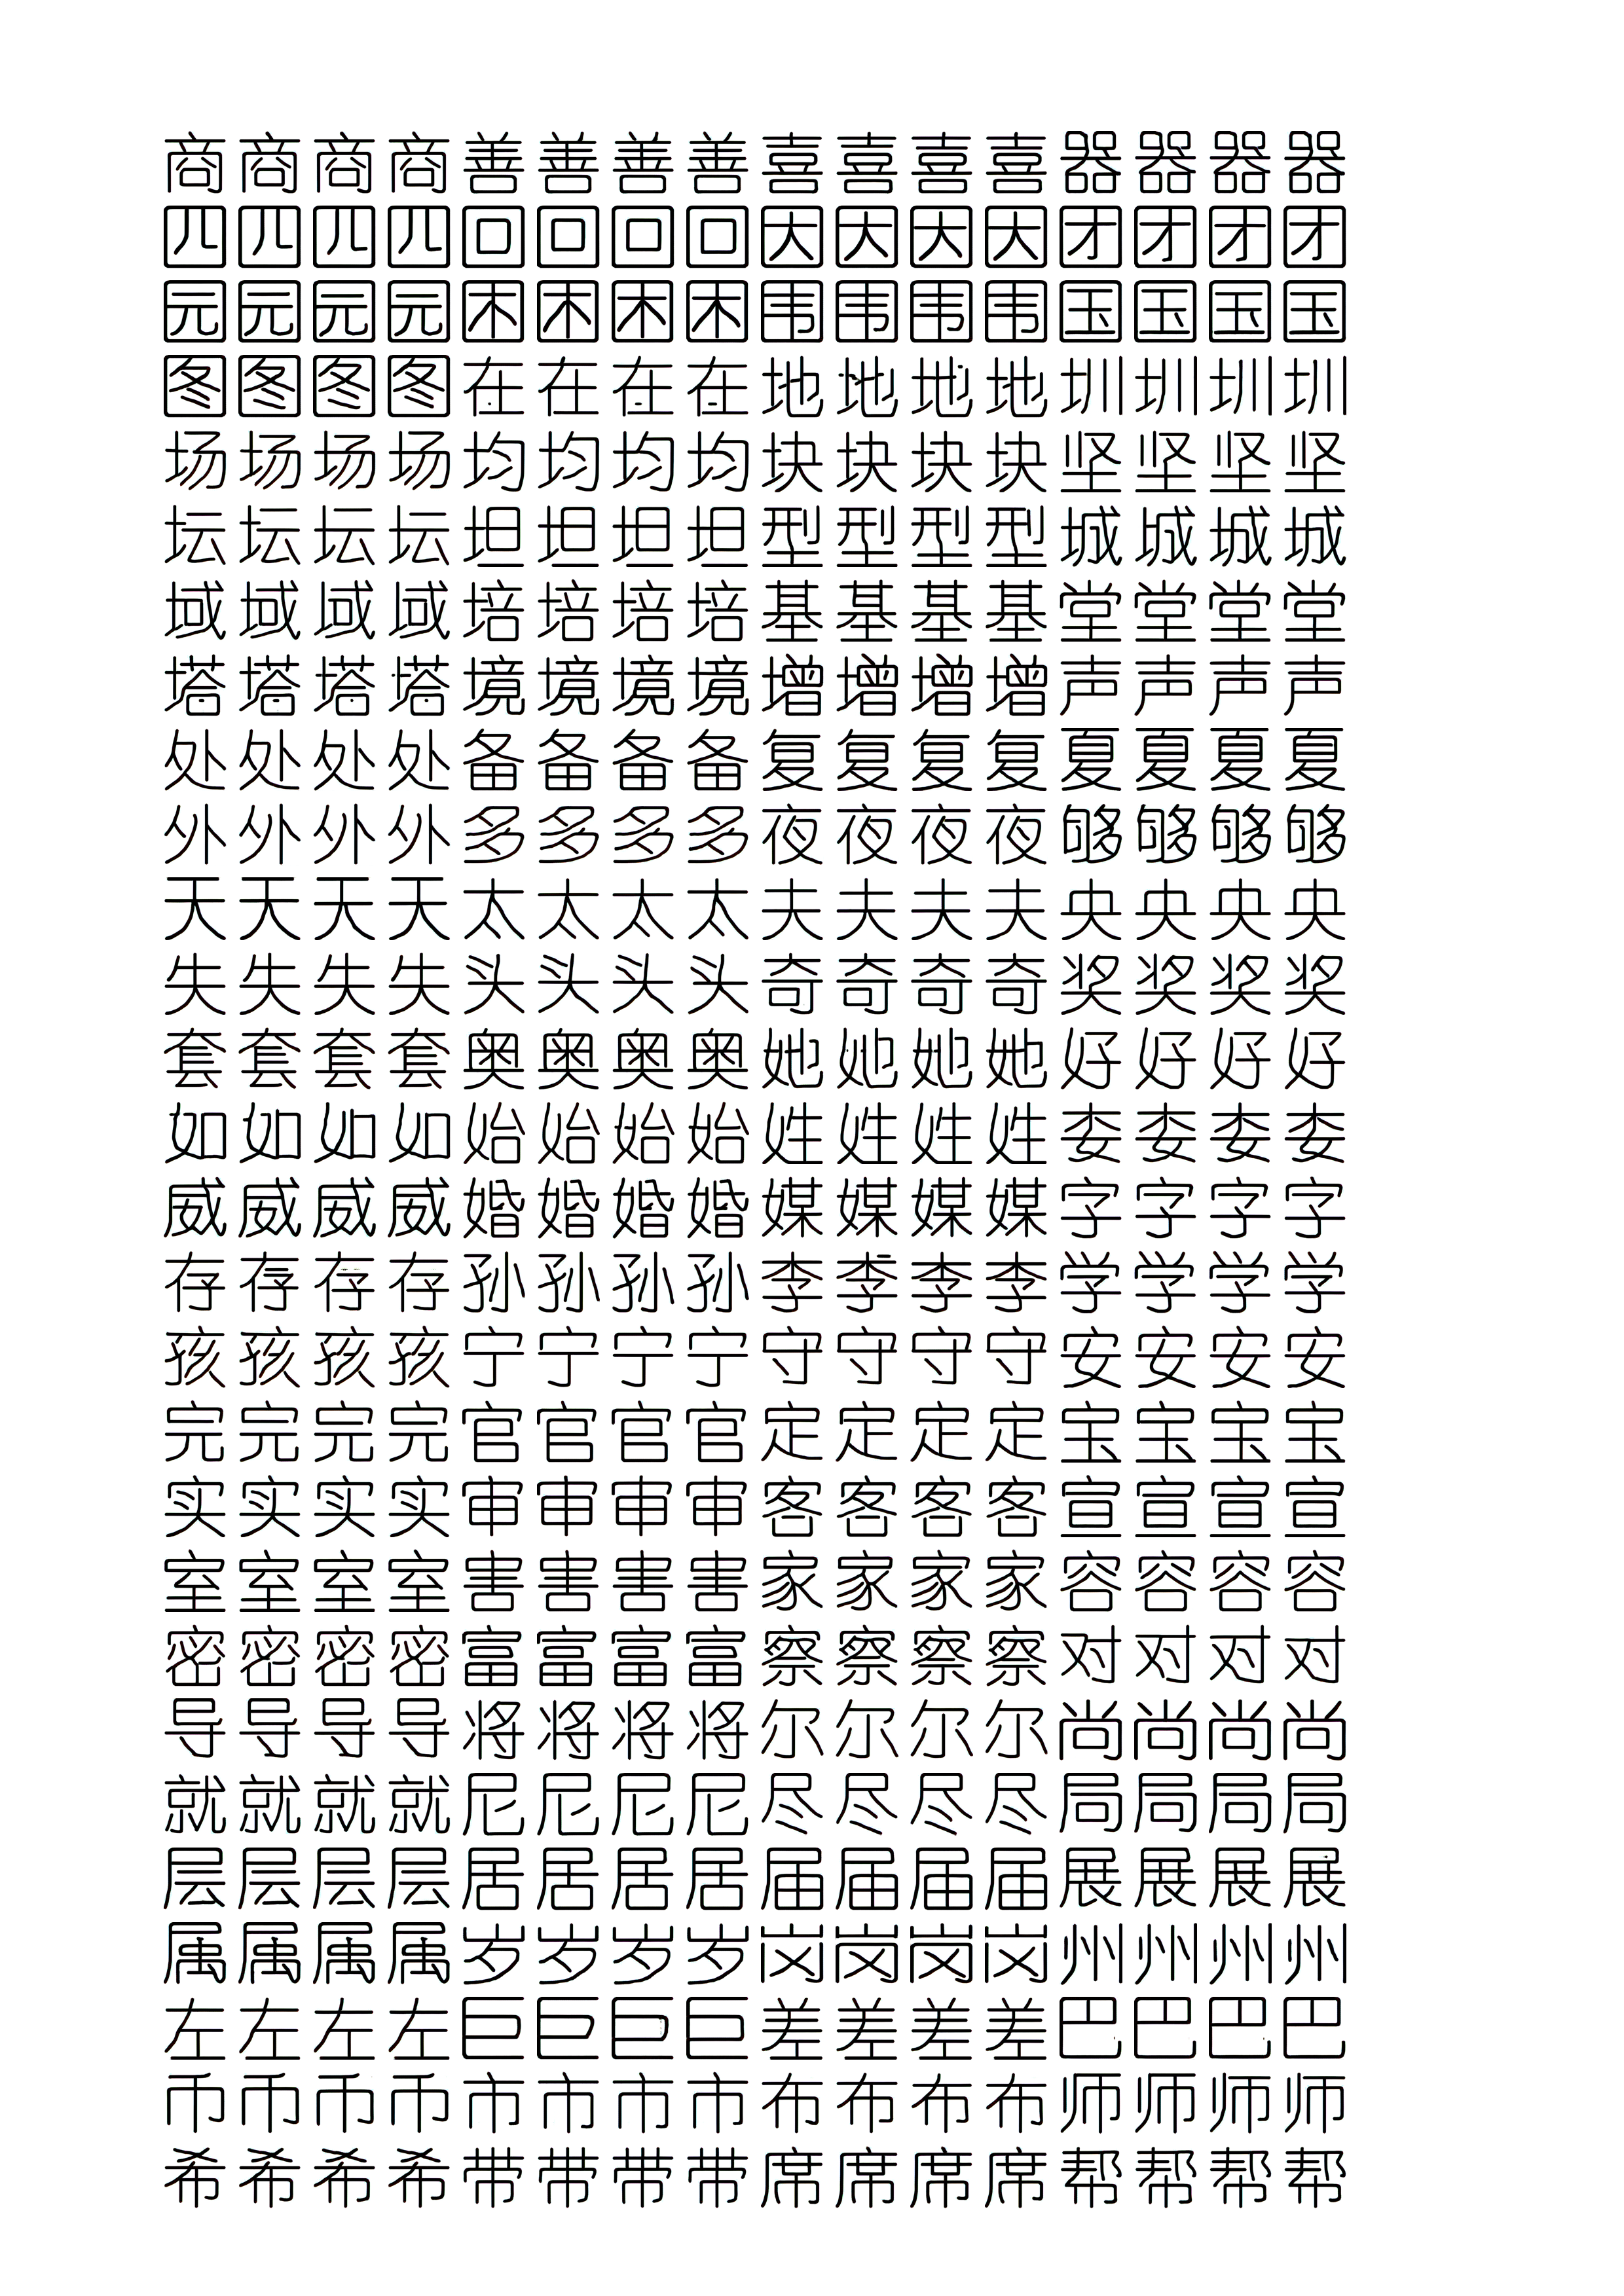 商商商商善善善善喜喜喜喜器器器器
四四四四回回回回因因因因团团团团
园园园园困困困困围围围围国国国国
图图图图在在在在地地地地圳圳圳圳
场场场场均均均均块块块块坚坚坚坚
坛坛坛坛坦坦坦坦型型型型城城城城
域域域域培培培培基基基基堂堂堂堂
塔塔塔塔境境境境增增增增声声声声
处处处处备备备备复复复复夏夏夏夏
外外外外多多多多夜夜夜夜够够够够
天天天天太太太太夫夫夫夫央央央央
失失失失头头头头奇奇奇奇奖奖奖奖
套套套套奥奥奥奥她她她她好好好好
如如如如始始始始姓姓姓姓委委委委
威威威威婚婚婚婚媒媒媒媒字字字字
存存存存孙孙孙孙李李李李学学学学
孩孩孩孩宁宁宁宁守守守守安安安安
完完完完官官官官定定定定宝宝宝宝
实实实实审审审审客客客客宣宣宣宣
室室室室害害害害家家家家容容容容
密密密密富富富富察察察察对对对对
导导导导将将将将尔尔尔尔尚尚尚尚
就就就就尼尼尼尼尽尽尽尽局局局局
层层层层居居居居届届届届展展展展
属属属属岁岁岁岁岗岗岗岗州州州州
左左左左巨巨巨巨差差差差巴巴巴巴
币币币币市市市市布布布布师师师师
希希希希带带带带席席席席帮帮帮帮